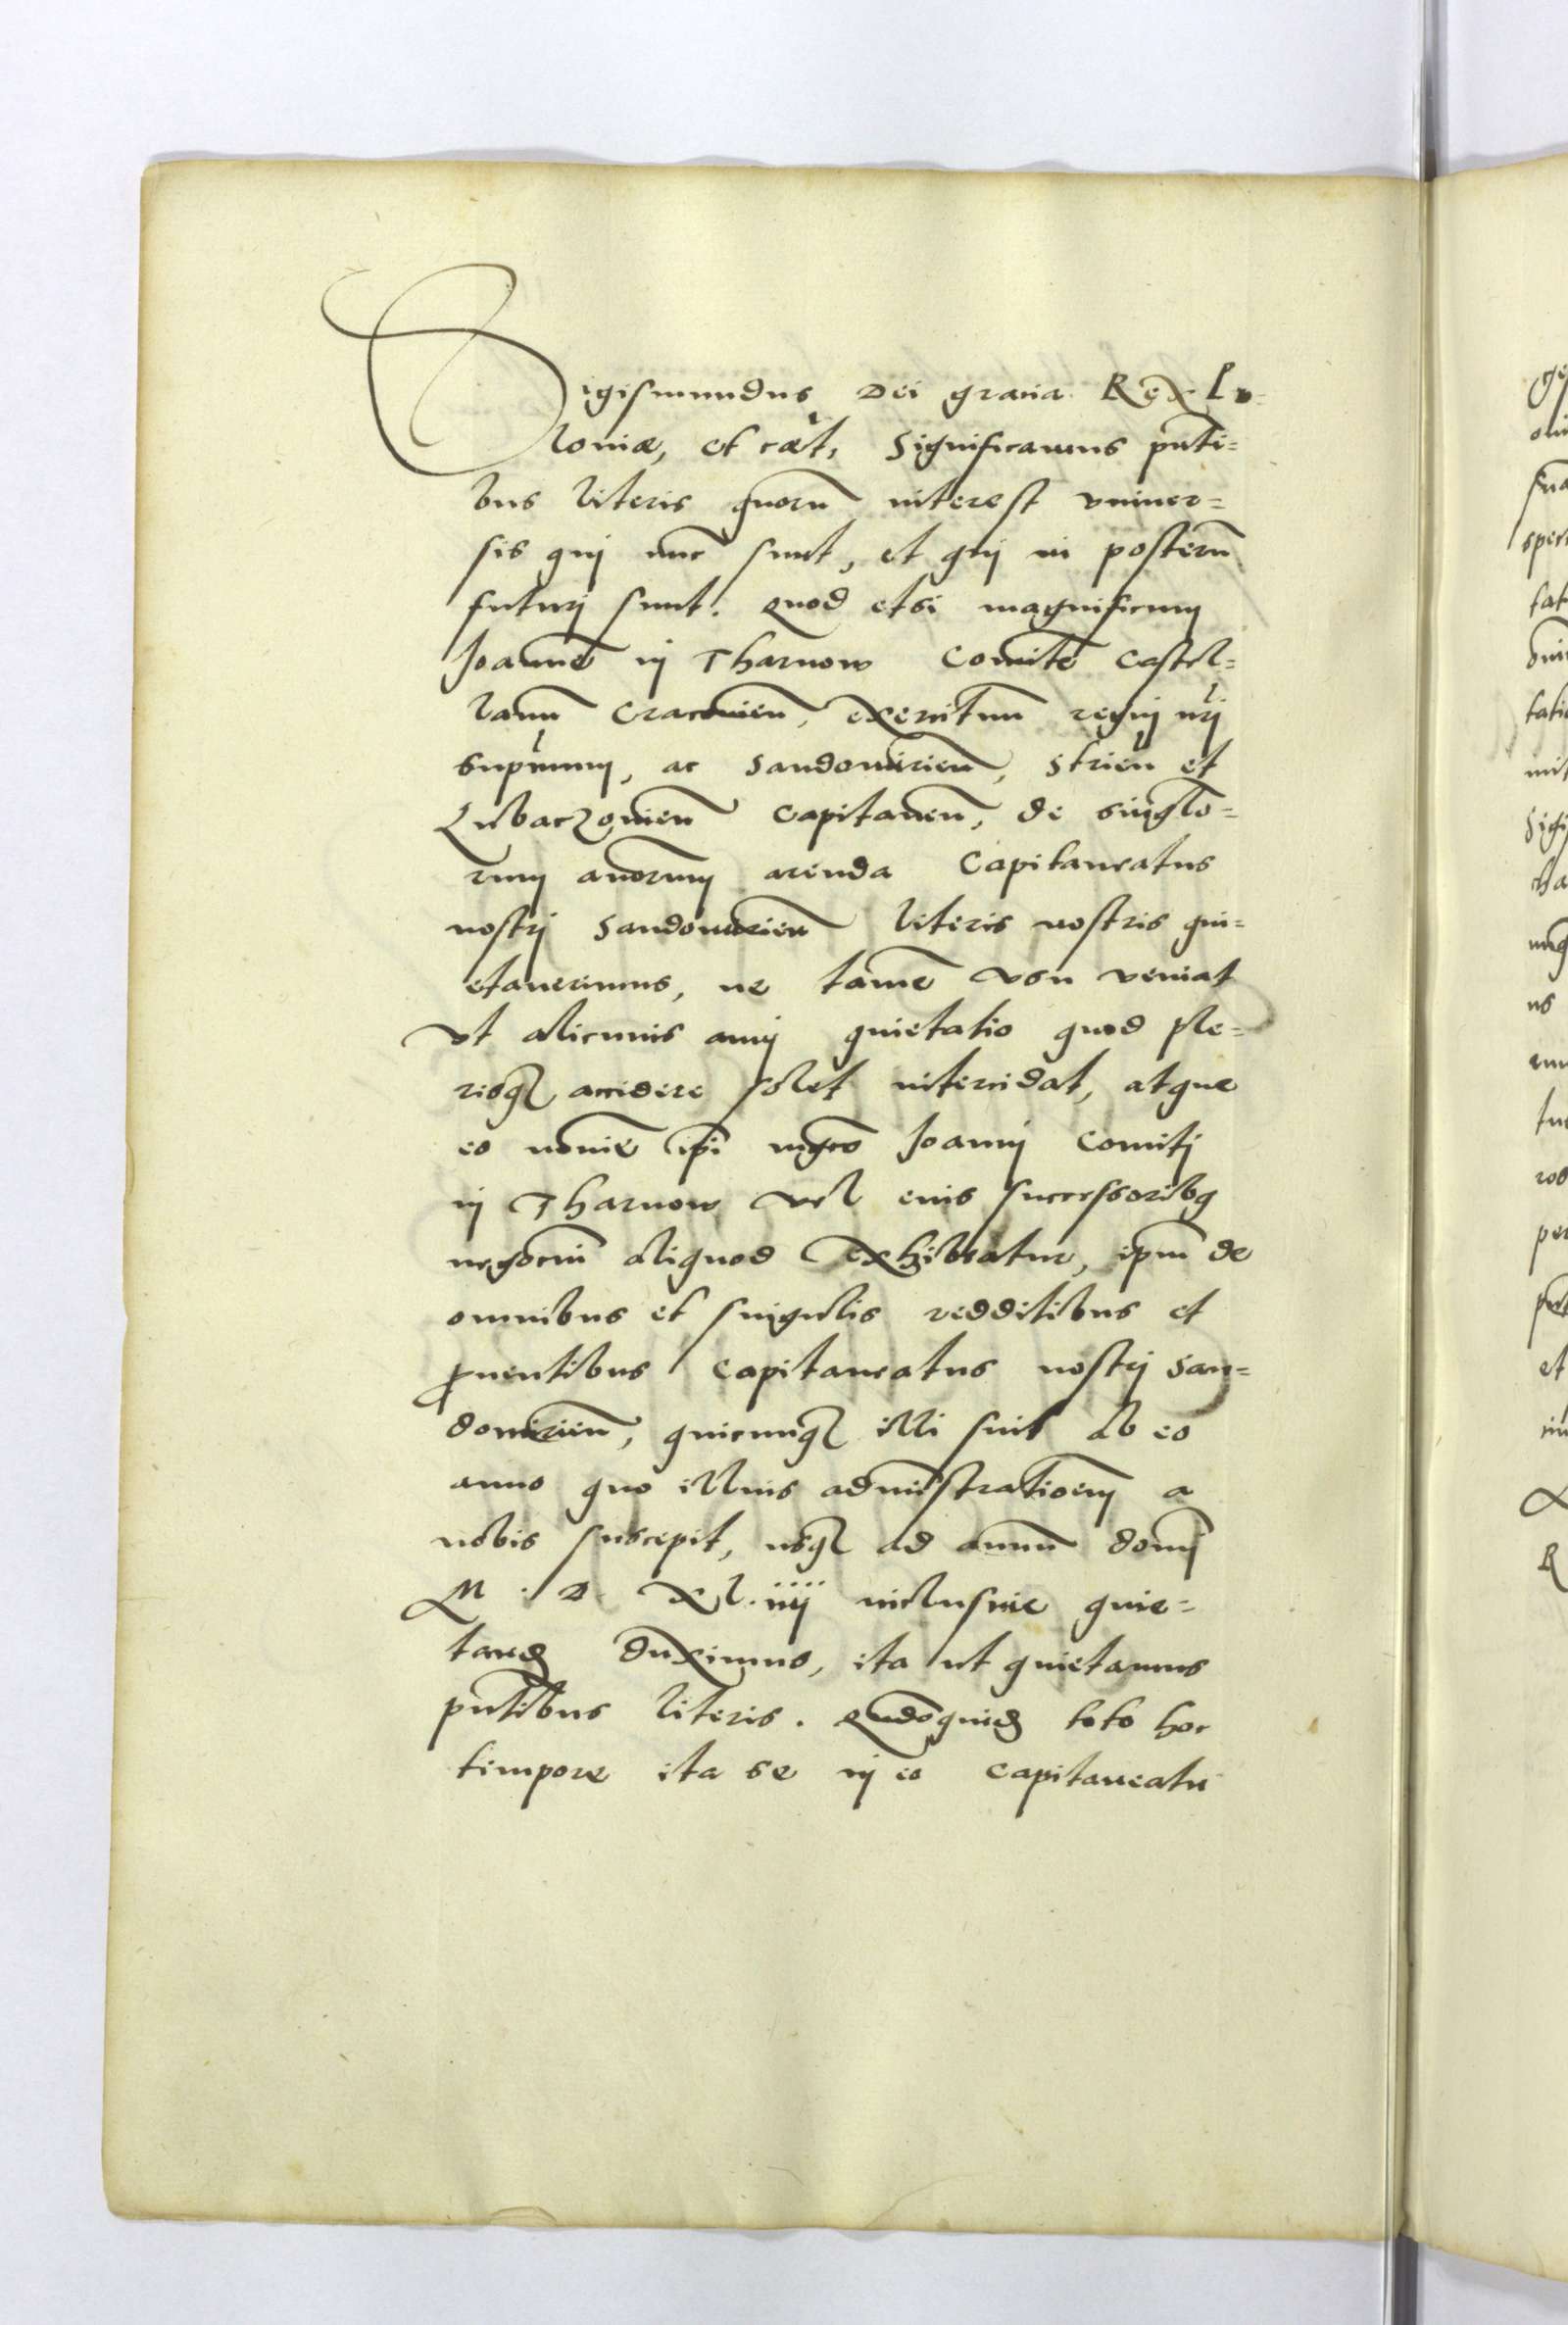 Sigismundus Dei gracia Rex Po=
loniæ, et cæt, Significamus pnti=
bus literis quoru interest vniuer=
sis quj nunc sunt, et quj in posteru
futurj sunt. Quod etsi magnificum
Joanne in Tharnow Comite Castel=
lanu Cracouien, exercituu regnj nrj
supmum, ac Sandomirien, Strien et
Lubaczouien Capitaneu, de singlo=
rum anorum arenda Capitaneatus
nostrj Sandomirien literis nostris qui=
etauerimus, ne tame vsu veniat
vt alicuius annj quietatio quod ple=
risq accidere solet intercidat, atque
eo nomie ipi mgco Joannj Comitj
in Tharnow vel eius successoribq
negociu aliquod exhibeatur, ipm de
omnibus et singulis redditibus et
puentibus Capitaneatus nostrj San=
domirien, quicunq illi sint ab eo
anno quo illius administrationem a
nobis suscepit, usq ad annu domj
M. D. XL.iiij inclusiue quie=
tand duximus, ita ut quietamus
pntibus literis. Qudoquid toto hoc
tempore ita se in eo Capitaneatu